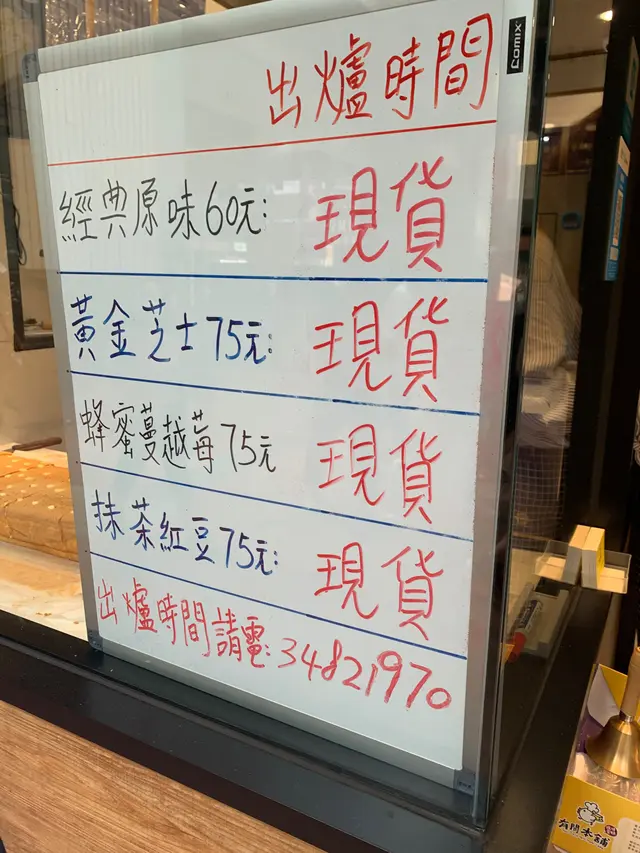 comix
出爐時間
經典原味60元: 現貨
黃金芝士75元: 現貨
蜂蜜蔓越莓75元 現貨
抹茶紅豆75元: 現貨
出爐時間請電: 34821970
有間本舖